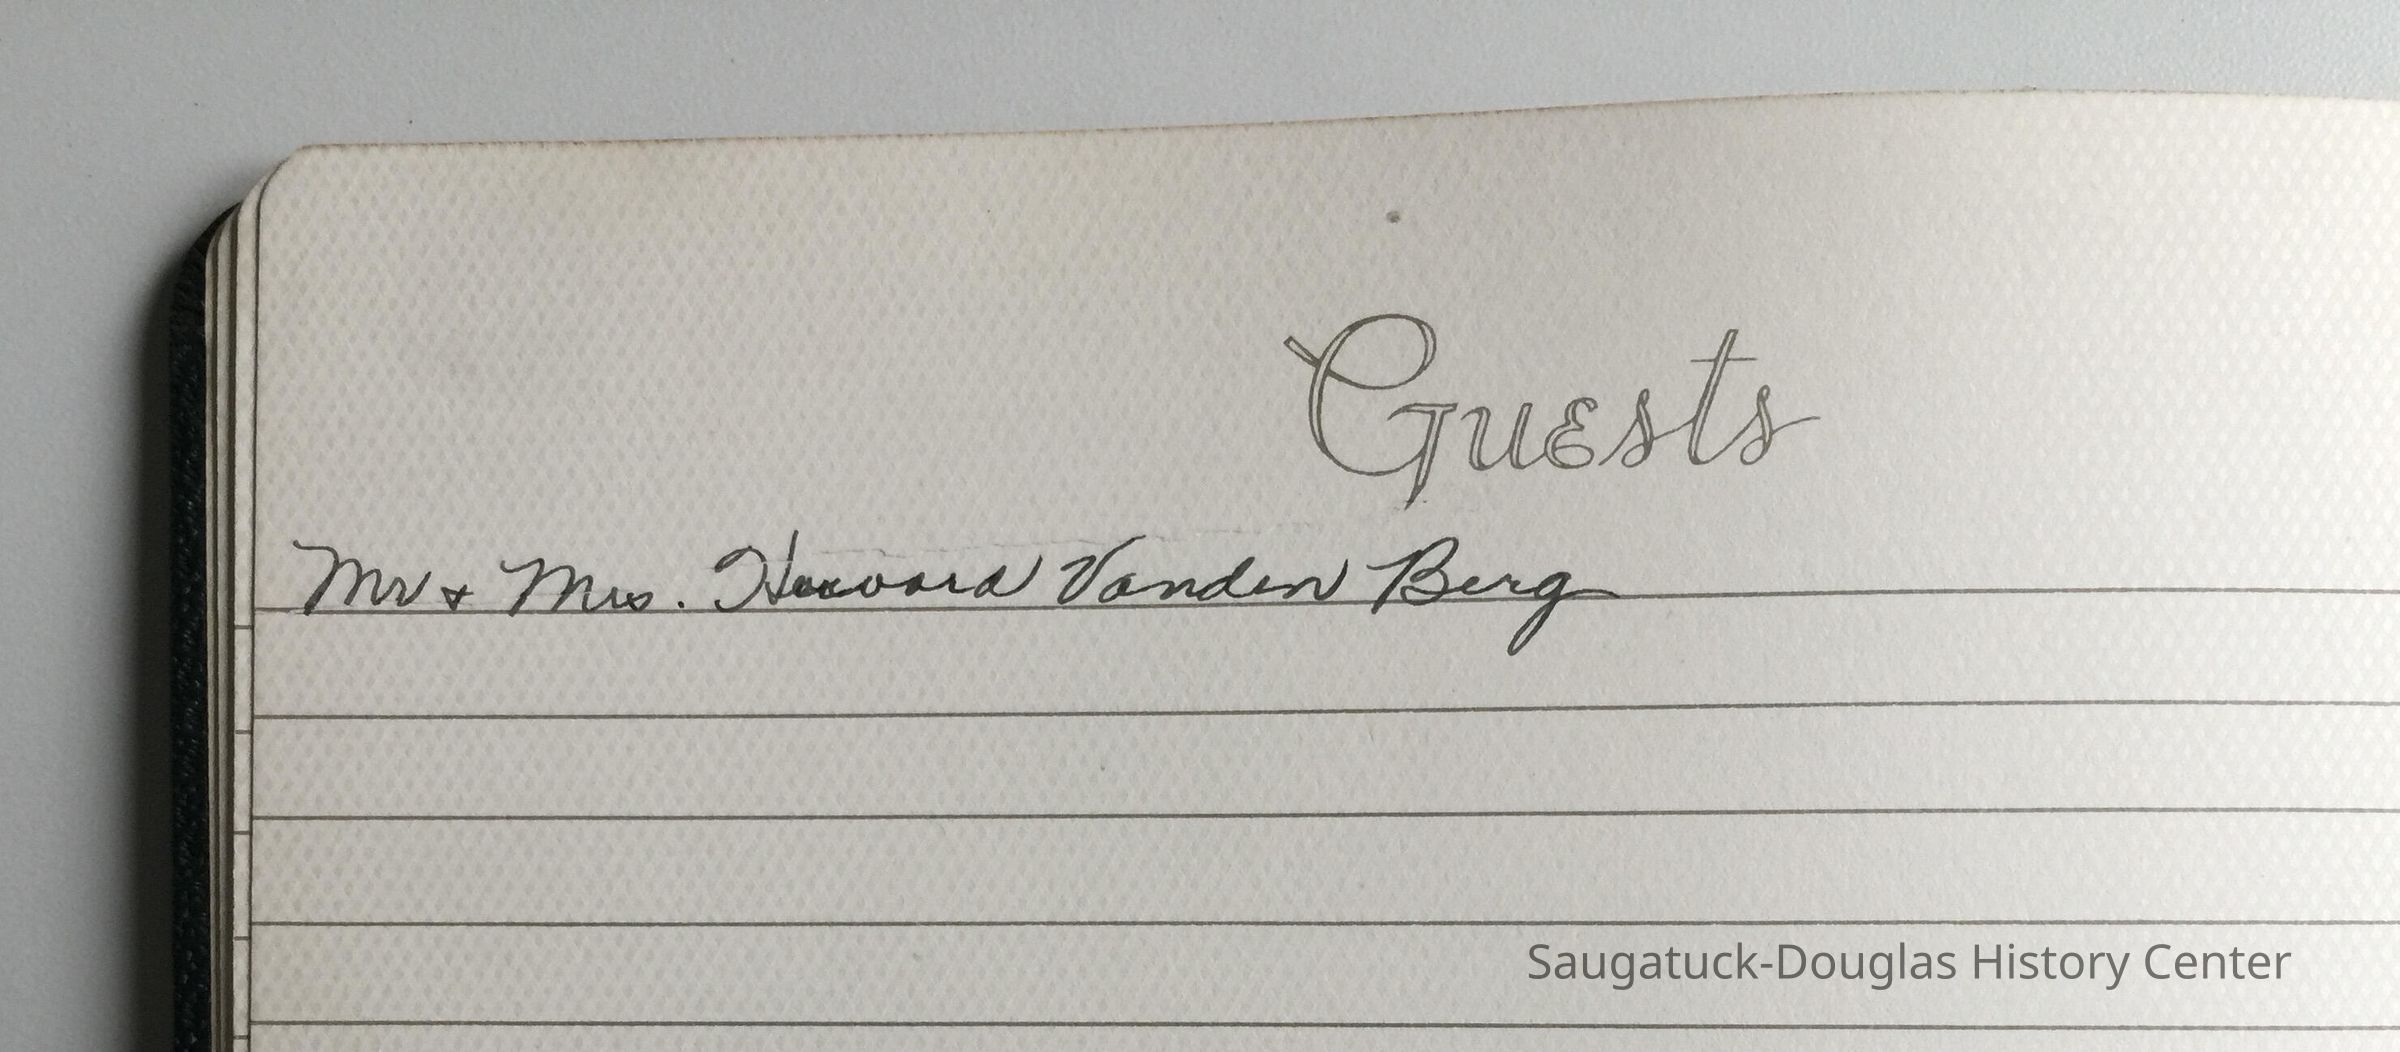 Guests
Mr & Mrs. Howard Vanden Berg
Saugatuck-Douglas History Center